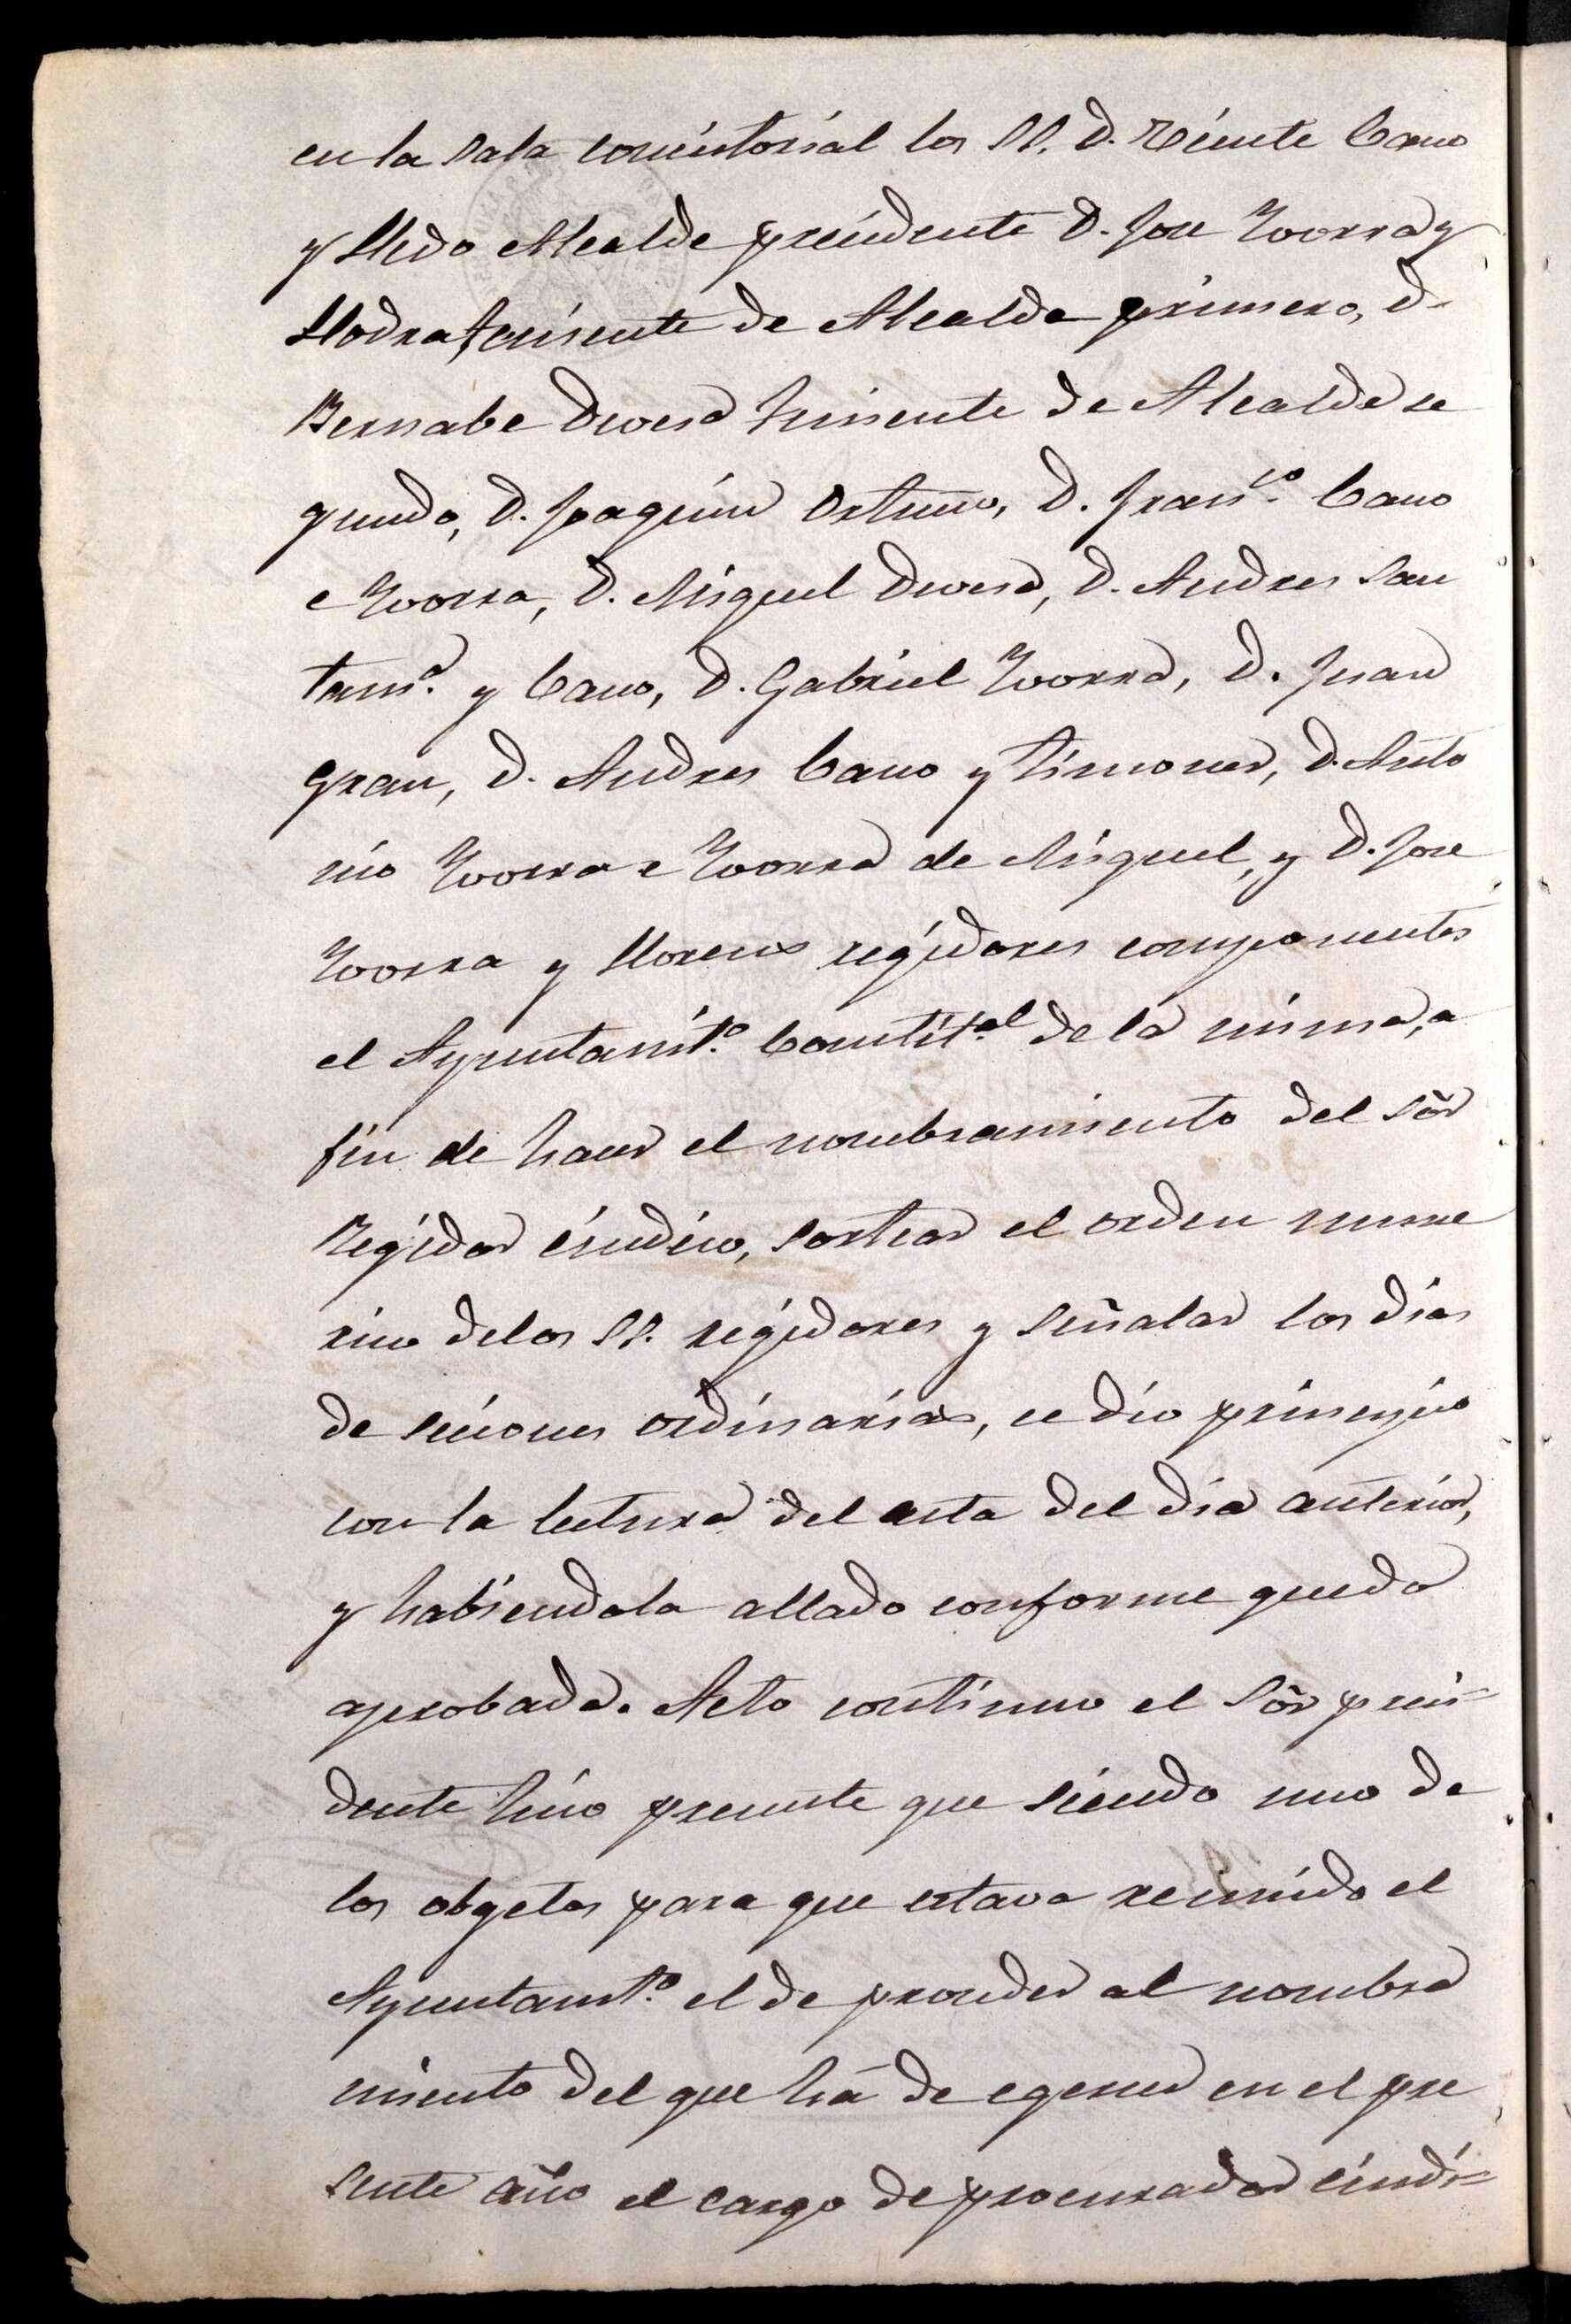 en la sala concistorial los SS. D. Vicente Cano
y Lledo Alcalde precidente D. Jose Yvorra y
Llodra, teniente de Alcalde primero, D.
Bernabe Devesa teniente de Alcalde se
gundo, D. Joaquin Ortuño, D. Fran.co Cano
e Yvorra, D. Miguel Devesa, D. Andres San
tam.a y Cano, D. Gabriel Yvorra, D. Juan
Grau, D. Andres Cano y Timoner, D. Anto
nio Yvorra e Yvorra de Miguel, y D. Jose
Yvorra y Llorens regidores componentes
el Ayuntamit.o Contit.al de la misma, a
fin de hacer el nombramiento del Sõr
Regidor cindico, sortear el orden nume
rico delos SS. regidores y señalar los dias
de seciones ordinarias, se dio principio
con la lectura del acta del dia anterior,
y habiendola allado conforme quedo
aprobada. Acto continuo el Sõr preci=
dente hizo presente que siendo uno de
los obgetos para que estava reunido el
Ayuntamt.o el de proceder al nombra
miento del que há de egercer en el pre
sente año el cargo de procurador cindi=